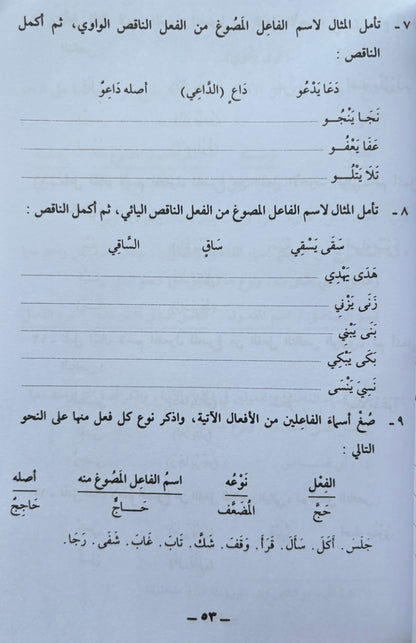 ٧ - تأمل المثال لاسم الفاعِل المَصُوغ من الفعل الناقص الواوي، ثم أكمل
الناقص :
دَعَا يَدْعُو دَاعٍ (الدَّاعِي) أصله دَاعِوٌ
نَجَـا يَنْجُـو
عَفَا يَعْفُـو
تَلَا يَتْلُـو
٨ - تأمل المثال لاسم الفاعل المصوغ من الفعل الناقص اليائي، ثم أكمل الناقص :
سَقَى يَسْقِي سَاقٍ السَّاقِي
هَدَى يَهْدِي
زَنَى يَزْنِي
بَنَى يَبْنِي
بَكَى يَبْكِي
نَسِيَ يَنْسَى
٩ - صُغْ أسماءَ الفاعِلين من الأفعال الآتية، واذكر نوع كل فعل منها على النحو
التالي :
الفِعْل نَوْعُه اسمُ الفاعل المَصُوغ منه أصله
حَجَّ المُضَعَّف حَـاجٌّ حَاجِجٌ
جلَسَ. أكَلَ. سَألَ. قَرَأَ. وَقَفَ. شَكَّ. تَابَ. غَابَ. شَفَى. رَجَا.
— ٥٣ —